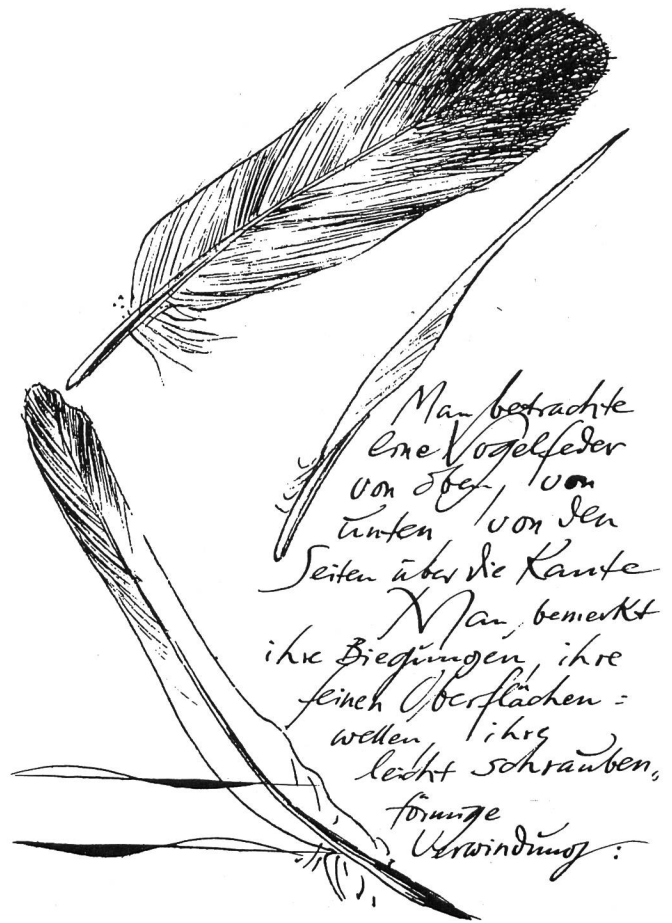 Man betrachte
eine Vogelfeder
von oben, von
unten von den
Seiten über die Kante
Man bemerkt
ihre Biegungen, ihre
feinen Oberflächen=
wellen, ihre
leicht schrauben„
förmige
Verwindung: